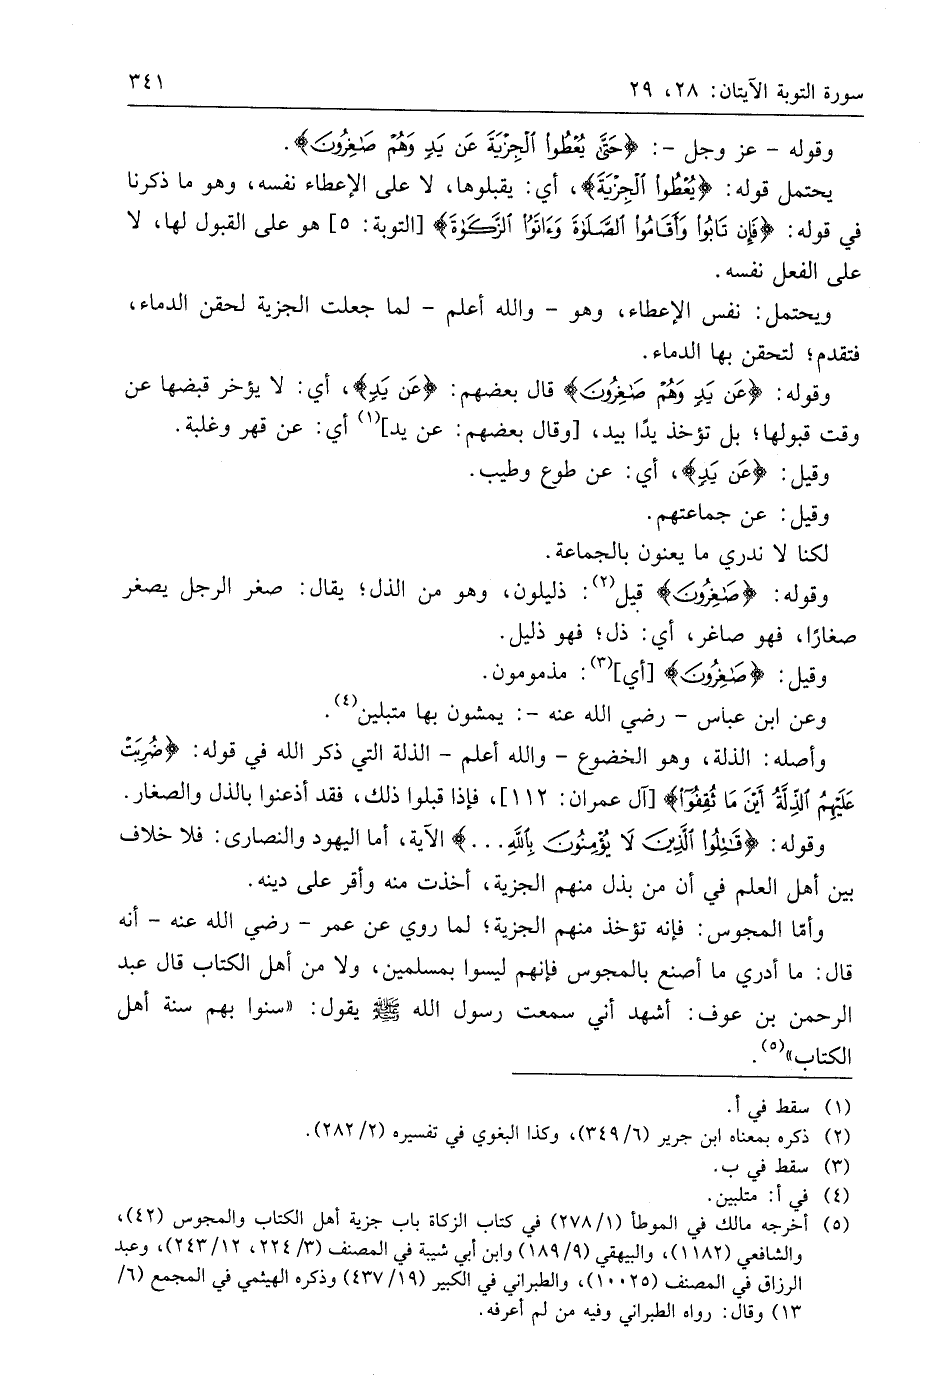 سورة التوبة الآيتان: ٢٨، ٢٩
٣٤١
وقوله - عز وجل -: ﴿حَتَّىٰ يُعْطُوا۟ ٱلْجِزْيَةَ عَن يَدٍ وَهُمْ صَـٰغِرُونَ﴾.
يحتمل قوله: ﴿يُعْطُوا۟ ٱلْجِزْيَةَ﴾، أي: يقبلوها، لا على الإعطاء نفسه، وهو ما ذكرنا
في قوله: ﴿فَإِن تَابُوا۟ وَأَقَامُوا۟ ٱلصَّلَوٰةَ وَءَاتَوُا۟ ٱلزَّكَوٰةَ﴾ [التوبة: ٥] هو على القبول لها، لا
على الفعل نفسه.
ويحتمل: نفس الإعطاء، وهو - والله أعلم - لما جعلت الجزية لحقن الدماء،
فتقدم؛ لتحقن بها الدماء.
وقوله: ﴿عَن يَدٍ وَهُمْ صَـٰغِرُونَ﴾ قال بعضهم: ﴿عَن يَدٍ﴾، أي: لا يؤخر قبضها عن
وقت قبولها؛ بل تؤخذ يدًا بيد، [وقال بعضهم: عن يد](١) أي: عن قهر وغلبة.
وقيل: ﴿عَن يَدٍ﴾، أي: عن طوع وطيب.
وقيل: عن جماعتهم.
لكنا لا ندري ما يعنون بالجماعة.
وقوله: ﴿صَـٰغِرُونَ﴾ قيل(٢): ذليلون، وهو من الذل؛ يقال: صغر الرجل يصغر
صغارًا، فهو صاغر، أي: ذل؛ فهو ذليل.
وقيل: ﴿صَـٰغِرُونَ﴾ [أي](٣): مذمومون.
وعن ابن عباس - رضي الله عنه -: يمشون بها متبلين(٤).
وأصله: الذلة، وهو الخضوع - والله أعلم - الذلة التي ذكر الله في قوله: ﴿ضُرِبَتْ
عَلَيْهِمُ ٱلذِّلَّةُ أَيْنَ مَا ثُقِفُوٓا۟﴾ [آل عمران: ١١٢]، فإذا قبلوا ذلك، فقد أذعنوا بالذل والصغار.
وقوله: ﴿قَـٰتِلُوا۟ ٱلَّذِينَ لَا يُؤْمِنُونَ بِٱللَّهِ...﴾ الآية، أما اليهود والنصارى: فلا خلاف
بين أهل العلم في أن من بذل منهم الجزية، أخذت منه وأقر على دينه.
وأمّا المجوس: فإنه تؤخذ منهم الجزية؛ لما روي عن عمر - رضي الله عنه - أنه
قال: ما أدري ما أصنع بالمجوس فإنهم ليسوا بمسلمين، ولا من أهل الكتاب قال عبد
الرحمن بن عوف: أشهد أني سمعت رسول الله ﷺ يقول: «سنوا بهم سنة أهل
الكتاب»(٥).
(١) سقط في أ.
(٢) ذكره بمعناه ابن جرير (٣٤٩/٦)، وكذا البغوي في تفسيره (٢٨٢/٢).
(٣) سقط في ب.
(٤) في أ: متلبين.
(٥) أخرجه مالك في الموطأ (٢٧٨/١) في كتاب الزكاة باب جزية أهل الكتاب والمجوس (٤٢)،
والشافعي (١١٨٢)، والبيهقي (١٨٩/٩) وابن أبي شيبة في المصنف (٢٢٤/٣، ٢٤٣/١٢)، وعبد
الرزاق في المصنف (١٠٠٢٥)، والطبراني في الكبير (٤٣٧/١٩) وذكره الهيثمي في المجمع (٦/
١٣) وقال: رواه الطبراني وفيه من لم أعرفه.